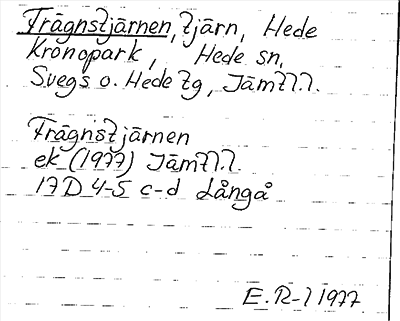 Trägnstjärnen, tjärn, Hede
Kronopark, Hede sn,
Svegs o. Hede tg, Jämtl. l.
Trägnstjärnen
ek (1977) Jämtl. l.
17D 4-5 c-d Långå
E. R-l 1977